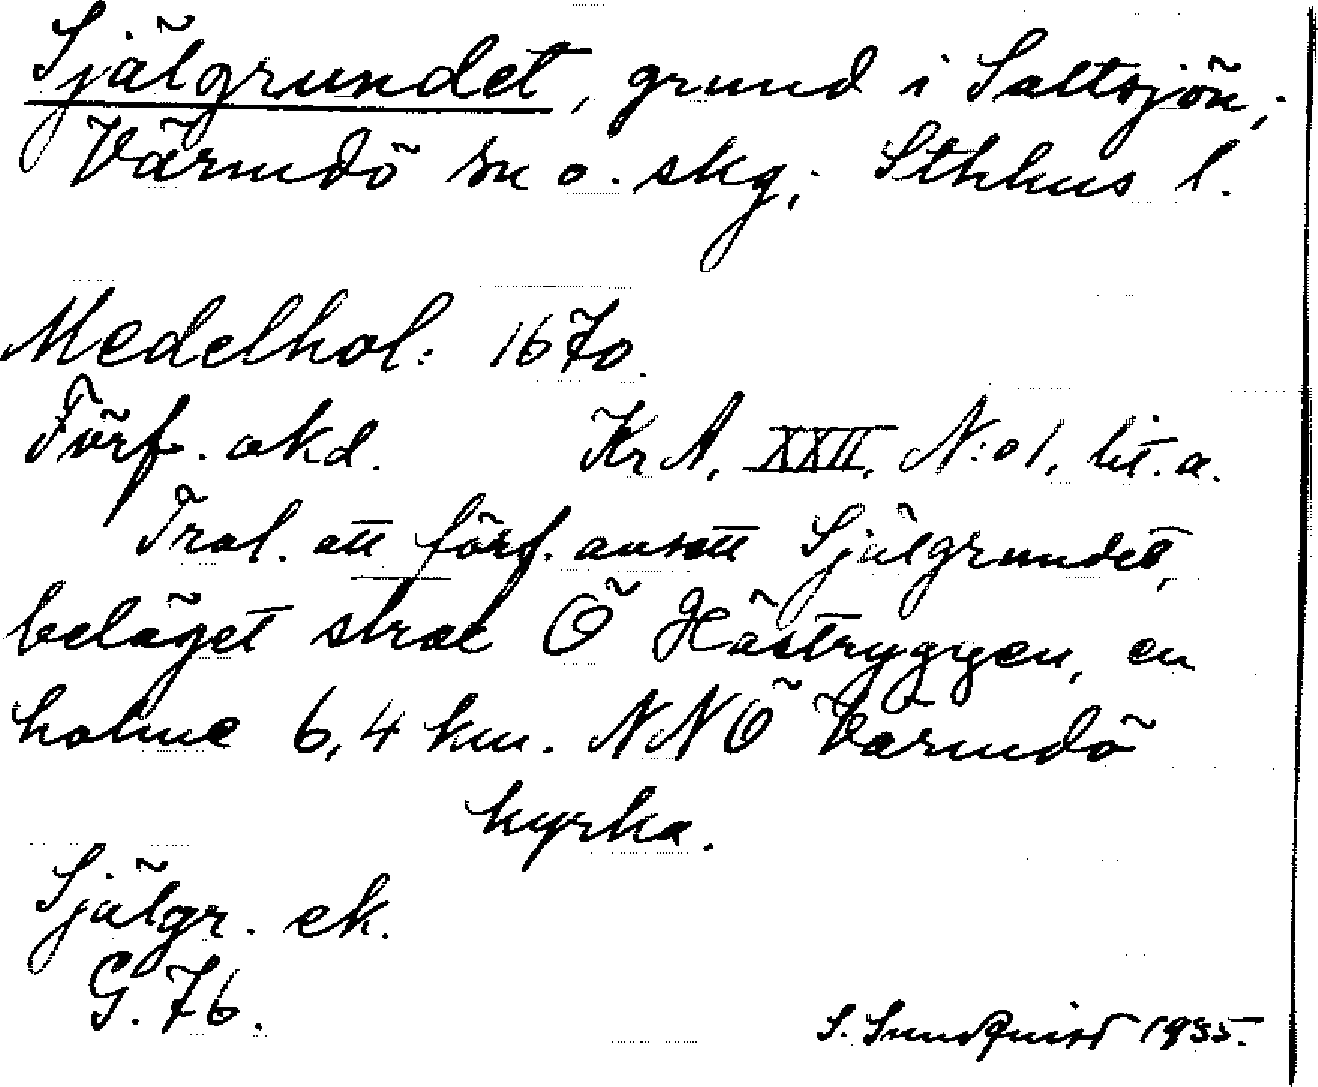 Själgrundet, grund i Saltsjön,;
Värmdö sn o. skg,; Sthlms l.
Medelhol: 1670.
Förf. okd. KrA, XXII, N:o 1, lit. a.
Trol. att förf. ansett Själgrundet,
beläget strax Ö Hästryggen, en
holme 6,4 km. NNÖ Värmdö
kyrka.
Själgr. ek.
G. 76.
S. Sundquist 1935.